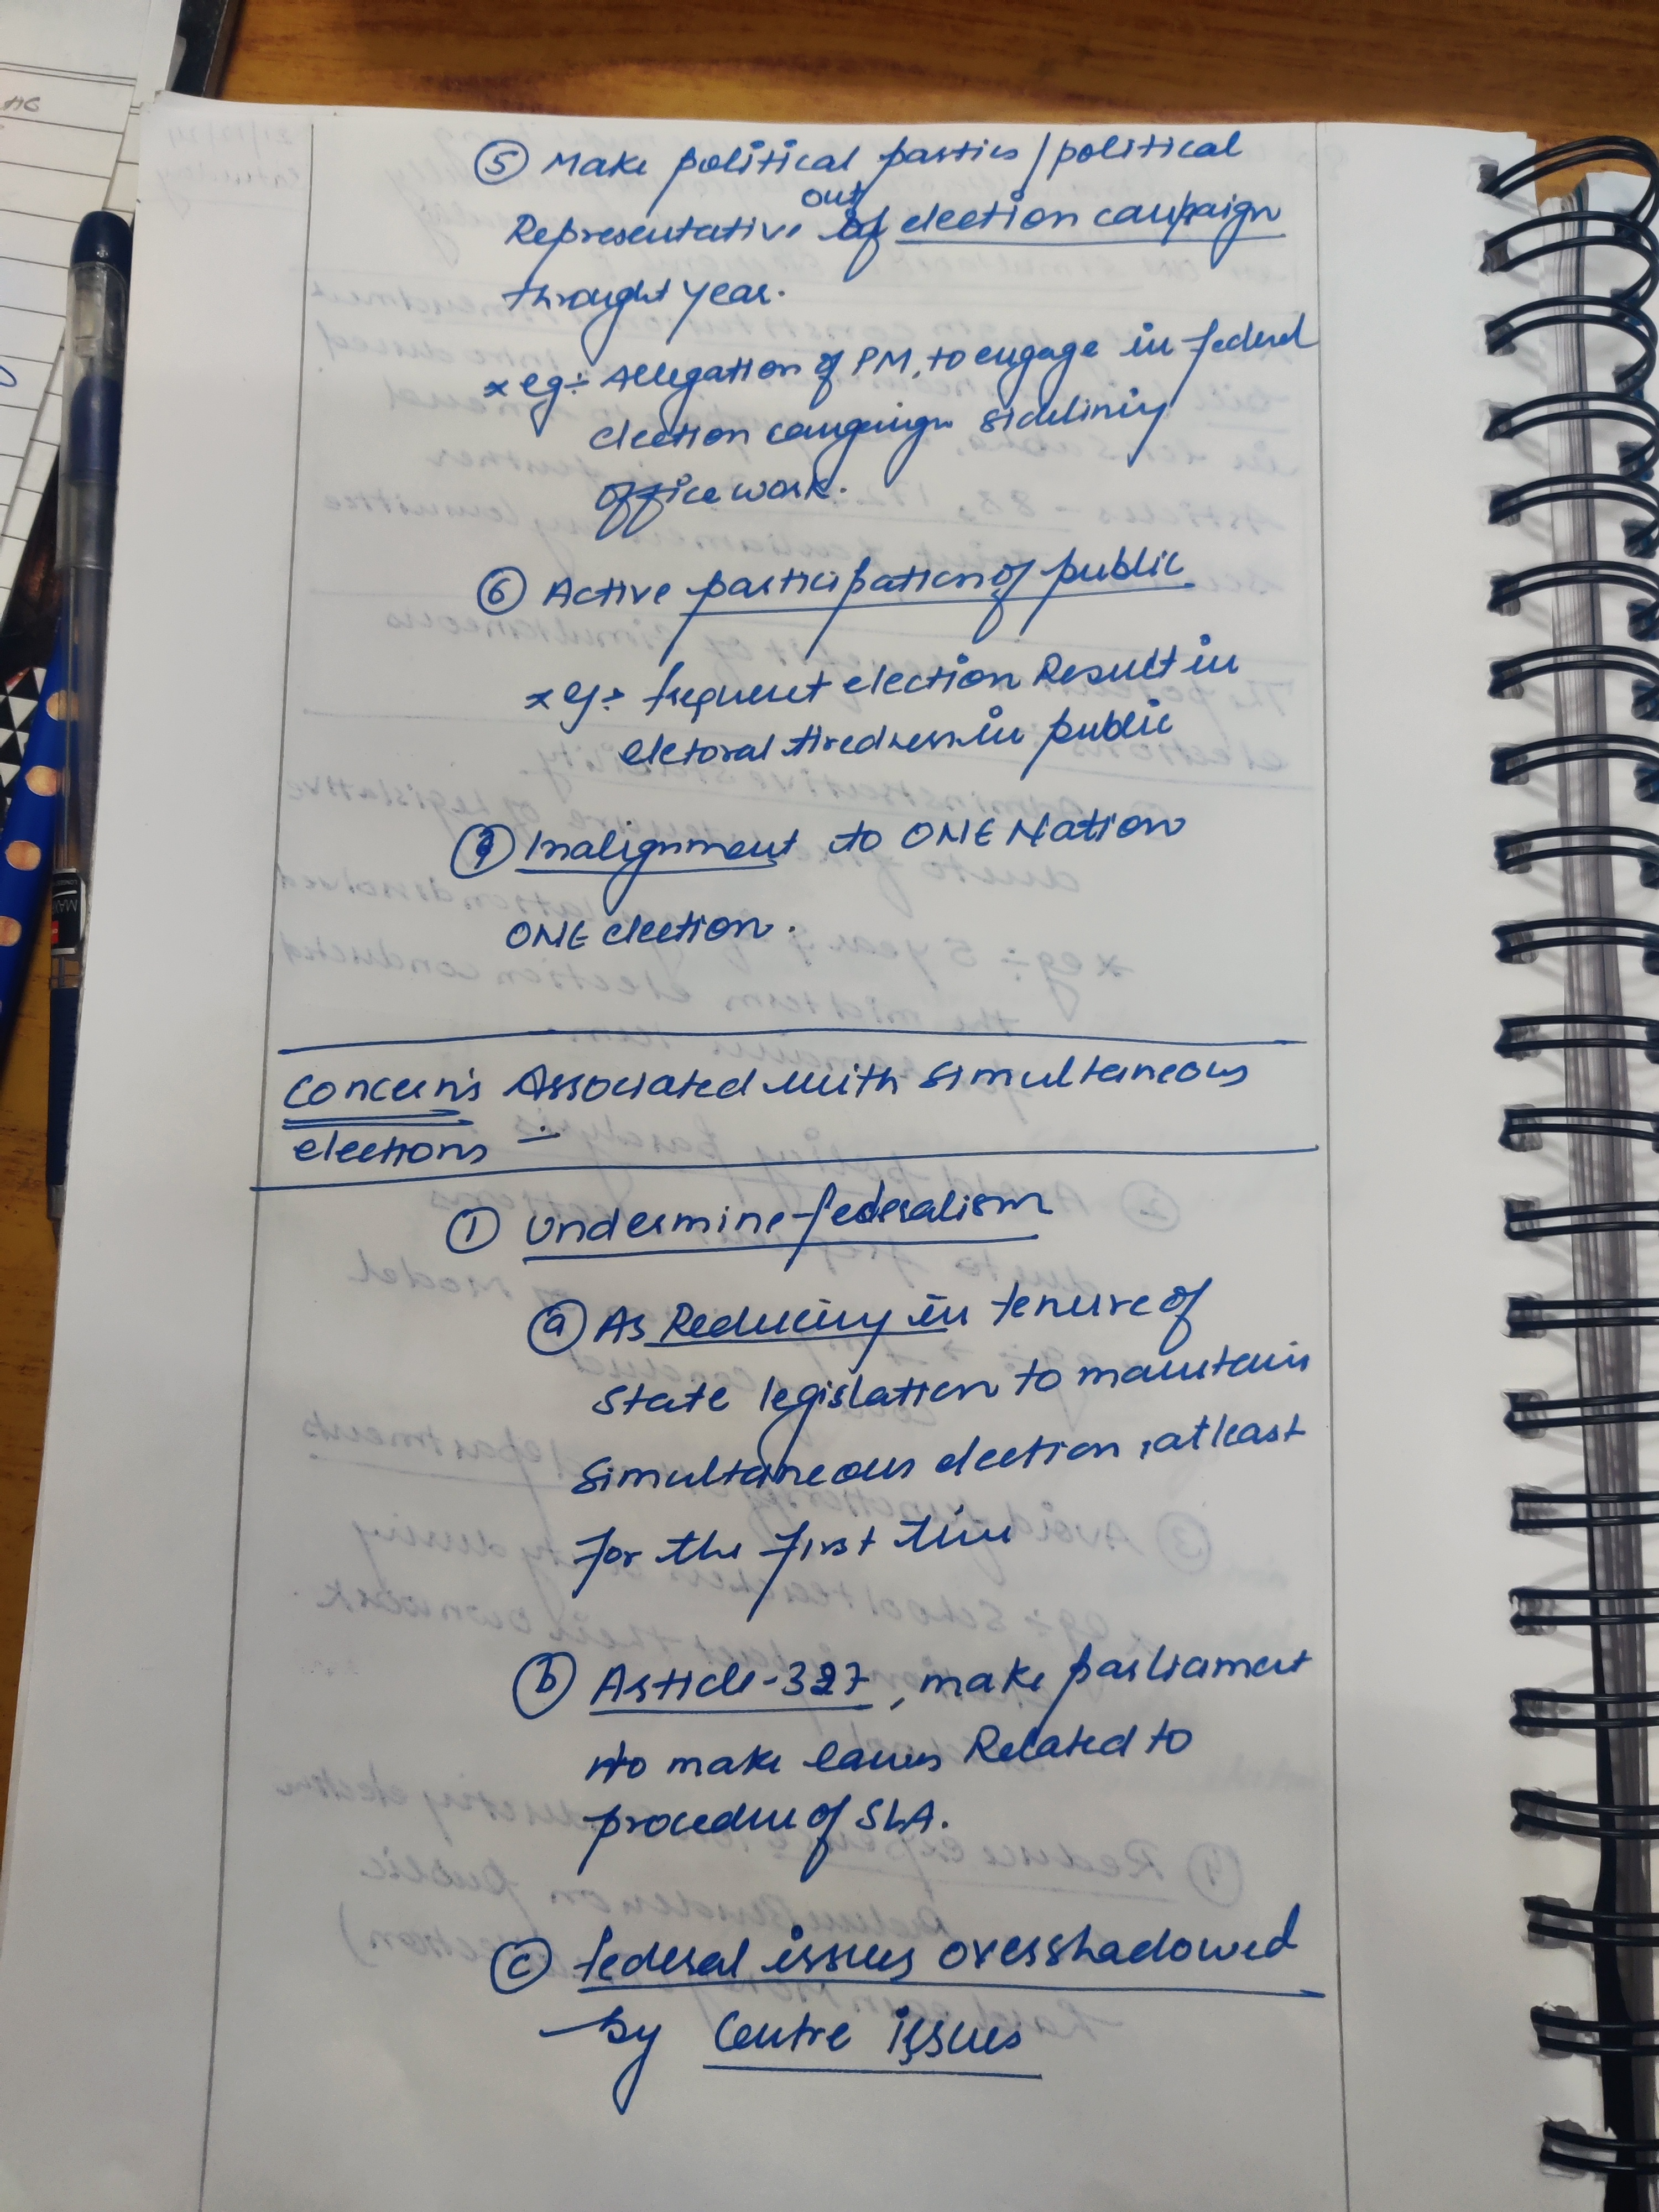 ⑤ Make political parties / political
out
Representative of election campaign
throught year.
* eg:- Allegation of PM, to engage in federal
election campaign sidelining
office work.
⑥ Active participation of public
* eg:- frequent election Result in
electoral tiredness in public
Inalignment to ONE Nation
ONE election.
Concern's Associated with simultaneous
elections :-
① Undermine federalism
ⓐ As Reducing in tenure of
state legislation to maintain
simultaneous election, atleast
for the first time
ⓑ Article-327, make parliament
to make laws Related to
procedure of SLA.
ⓒ federal issues overshadowed
by Centre issues